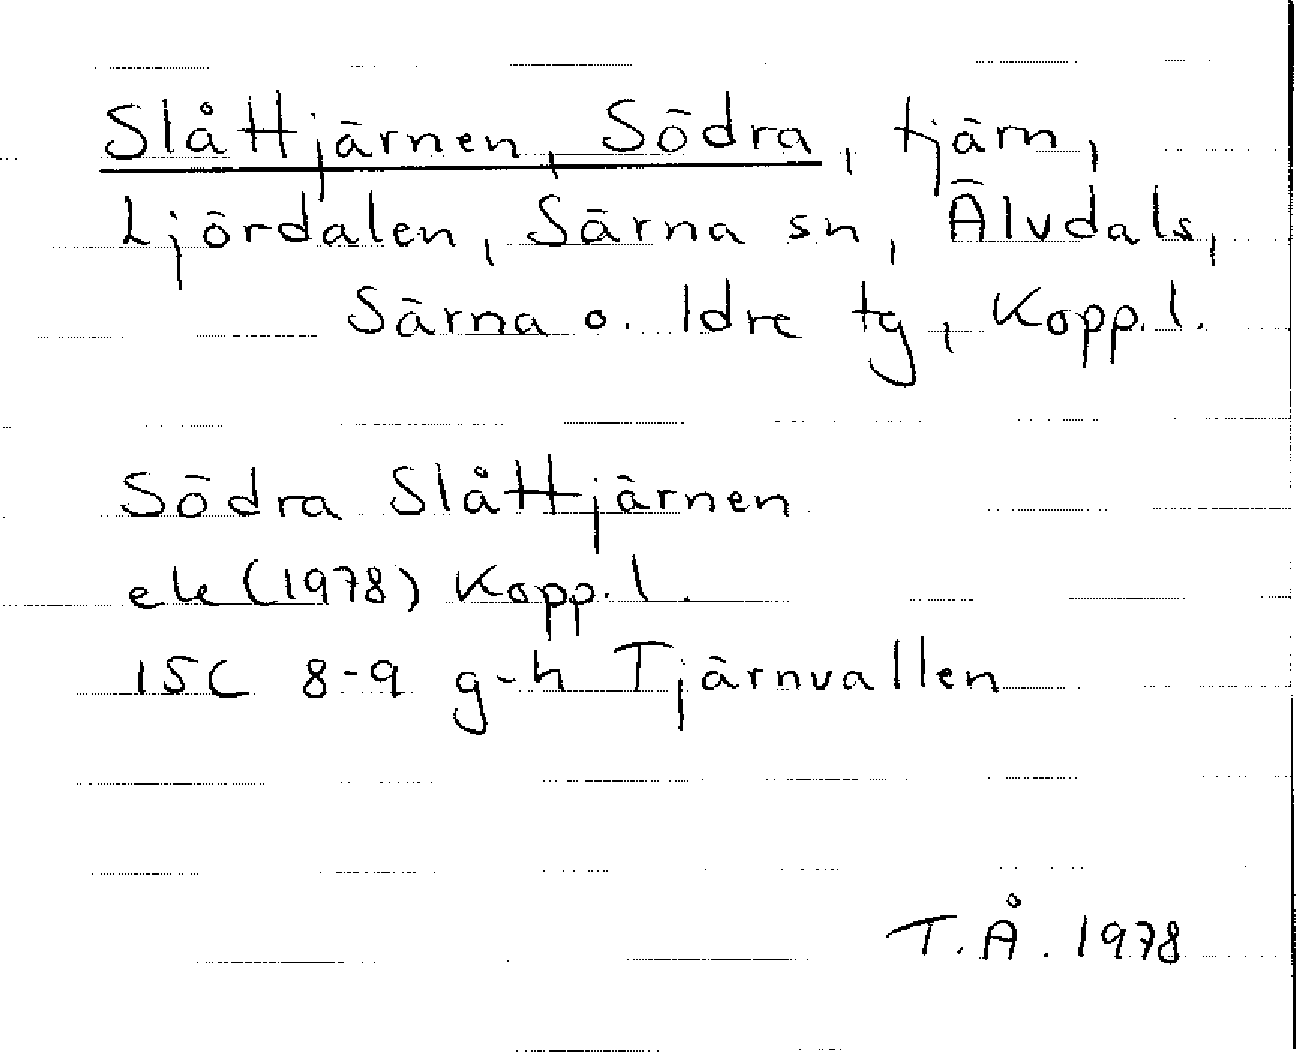 Slåttjärnen, Södra, tjärn,
Ljördalen, Särna sn, Älvdals,
Särna o. Idre tg, Kopp. l.
Södra Slåttjärnen
ek (1978) Kopp. l.
15C 8-9 g-h Tjärnvallen
T.Å. 1978